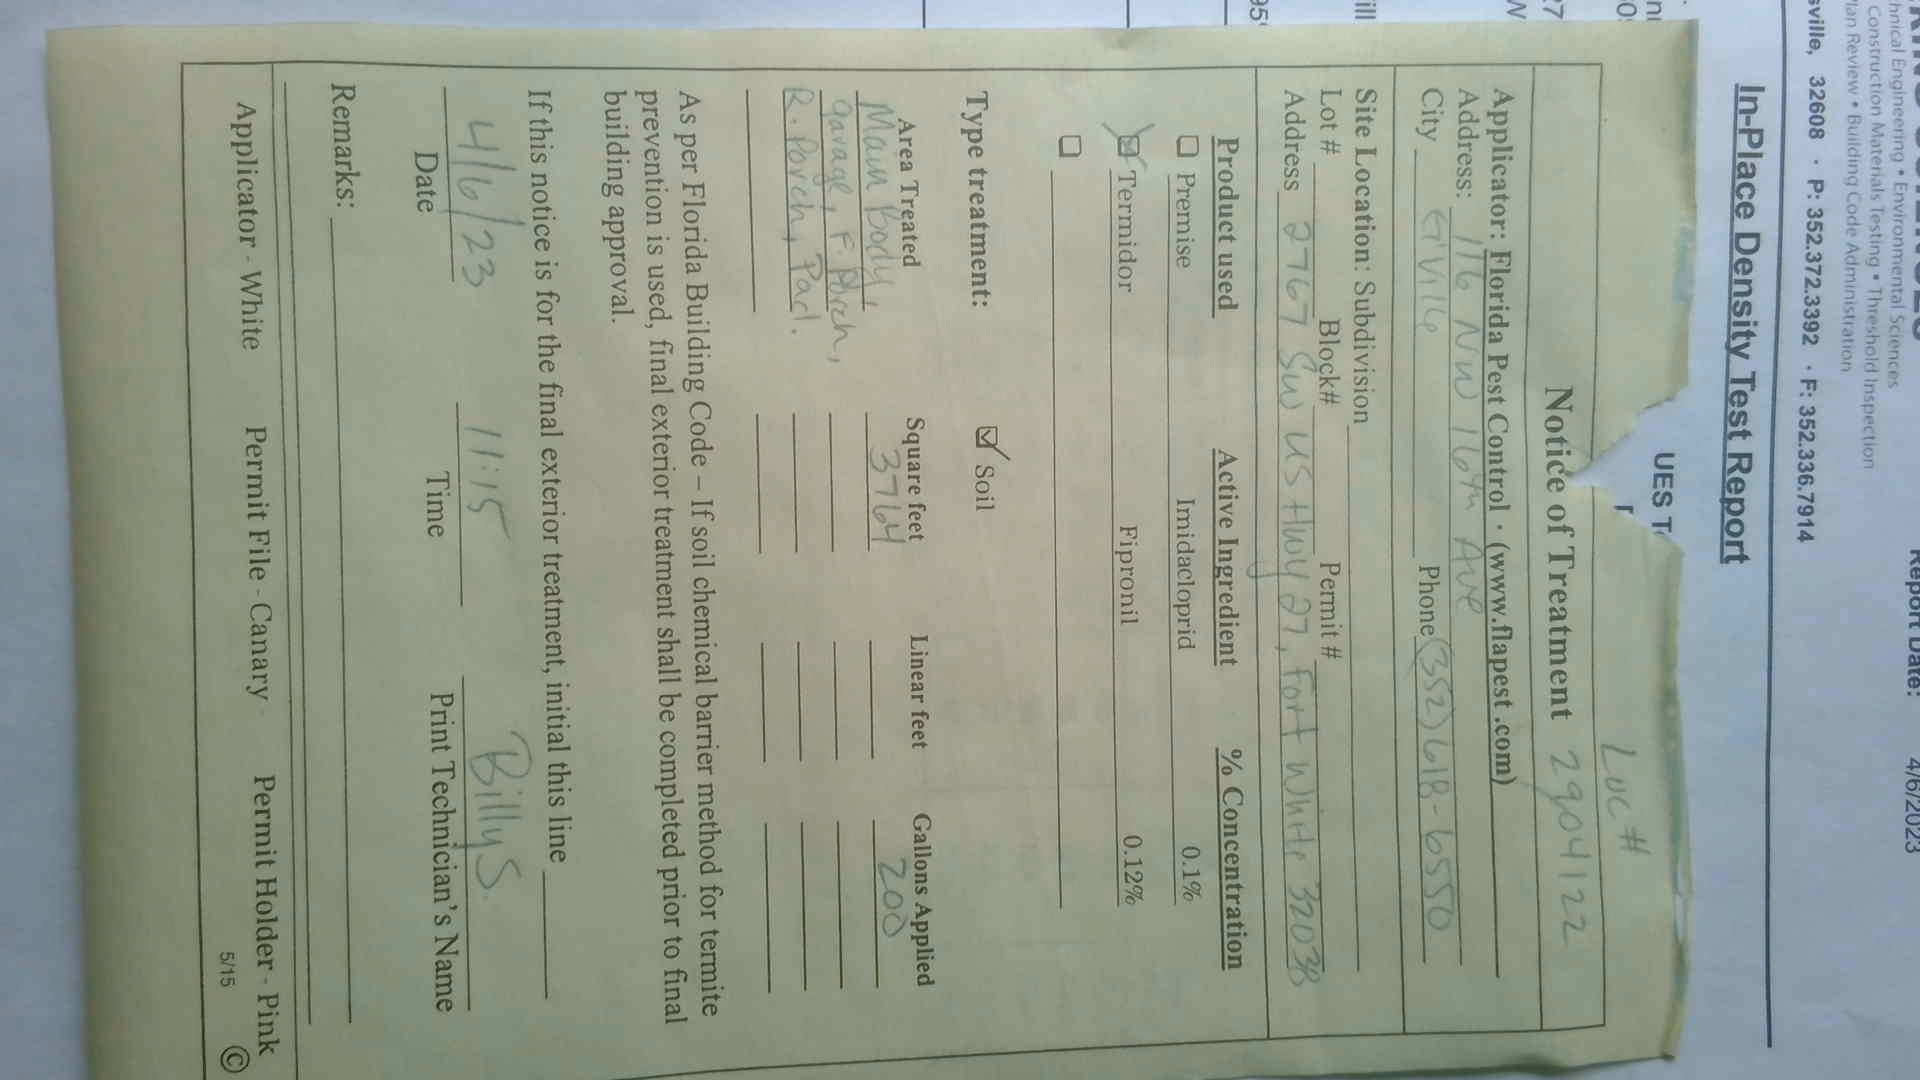 hnical Engineering • Environmental Sciences
Construction Materials Testing • Threshold Inspection
lan Review • Building Code Administration
sville, 32608 • P: 352.372.3392 • F: 352.336.7914
Report Date: 4/6/2023
In-Place Density Test Report
UES T
Loc#
Notice of Treatment 2904122
Applicator: Florida Pest Control • (www.flapest.com)
Address: 116 NW 16th Ave
City G'Ville Phone (352) 618-6550
Site Location: Subdivision
Lot # Block# Permit #
Address 2767 SW US Hwy 27, Fort White 32038
Product used Active Ingredient % Concentration
☐ Premise Imidacloprid 0.1%
☒ Termidor Fipronil 0.12%
☐
Type treatment: ☑ Soil
Area Treated Square feet Linear feet Gallons Applied
Main Body, 3764 200
garage, F. Porch,
R. Porch, Pad.
As per Florida Building Code – If soil chemical barrier method for termite
prevention is used, final exterior treatment shall be completed prior to final
building approval.
If this notice is for the final exterior treatment, initial this line
4/6/23 11:15 Billy S.
Date Time Print Technician's Name
Remarks:
Applicator - White Permit File - Canary Permit Holder - Pink
5/15 ©